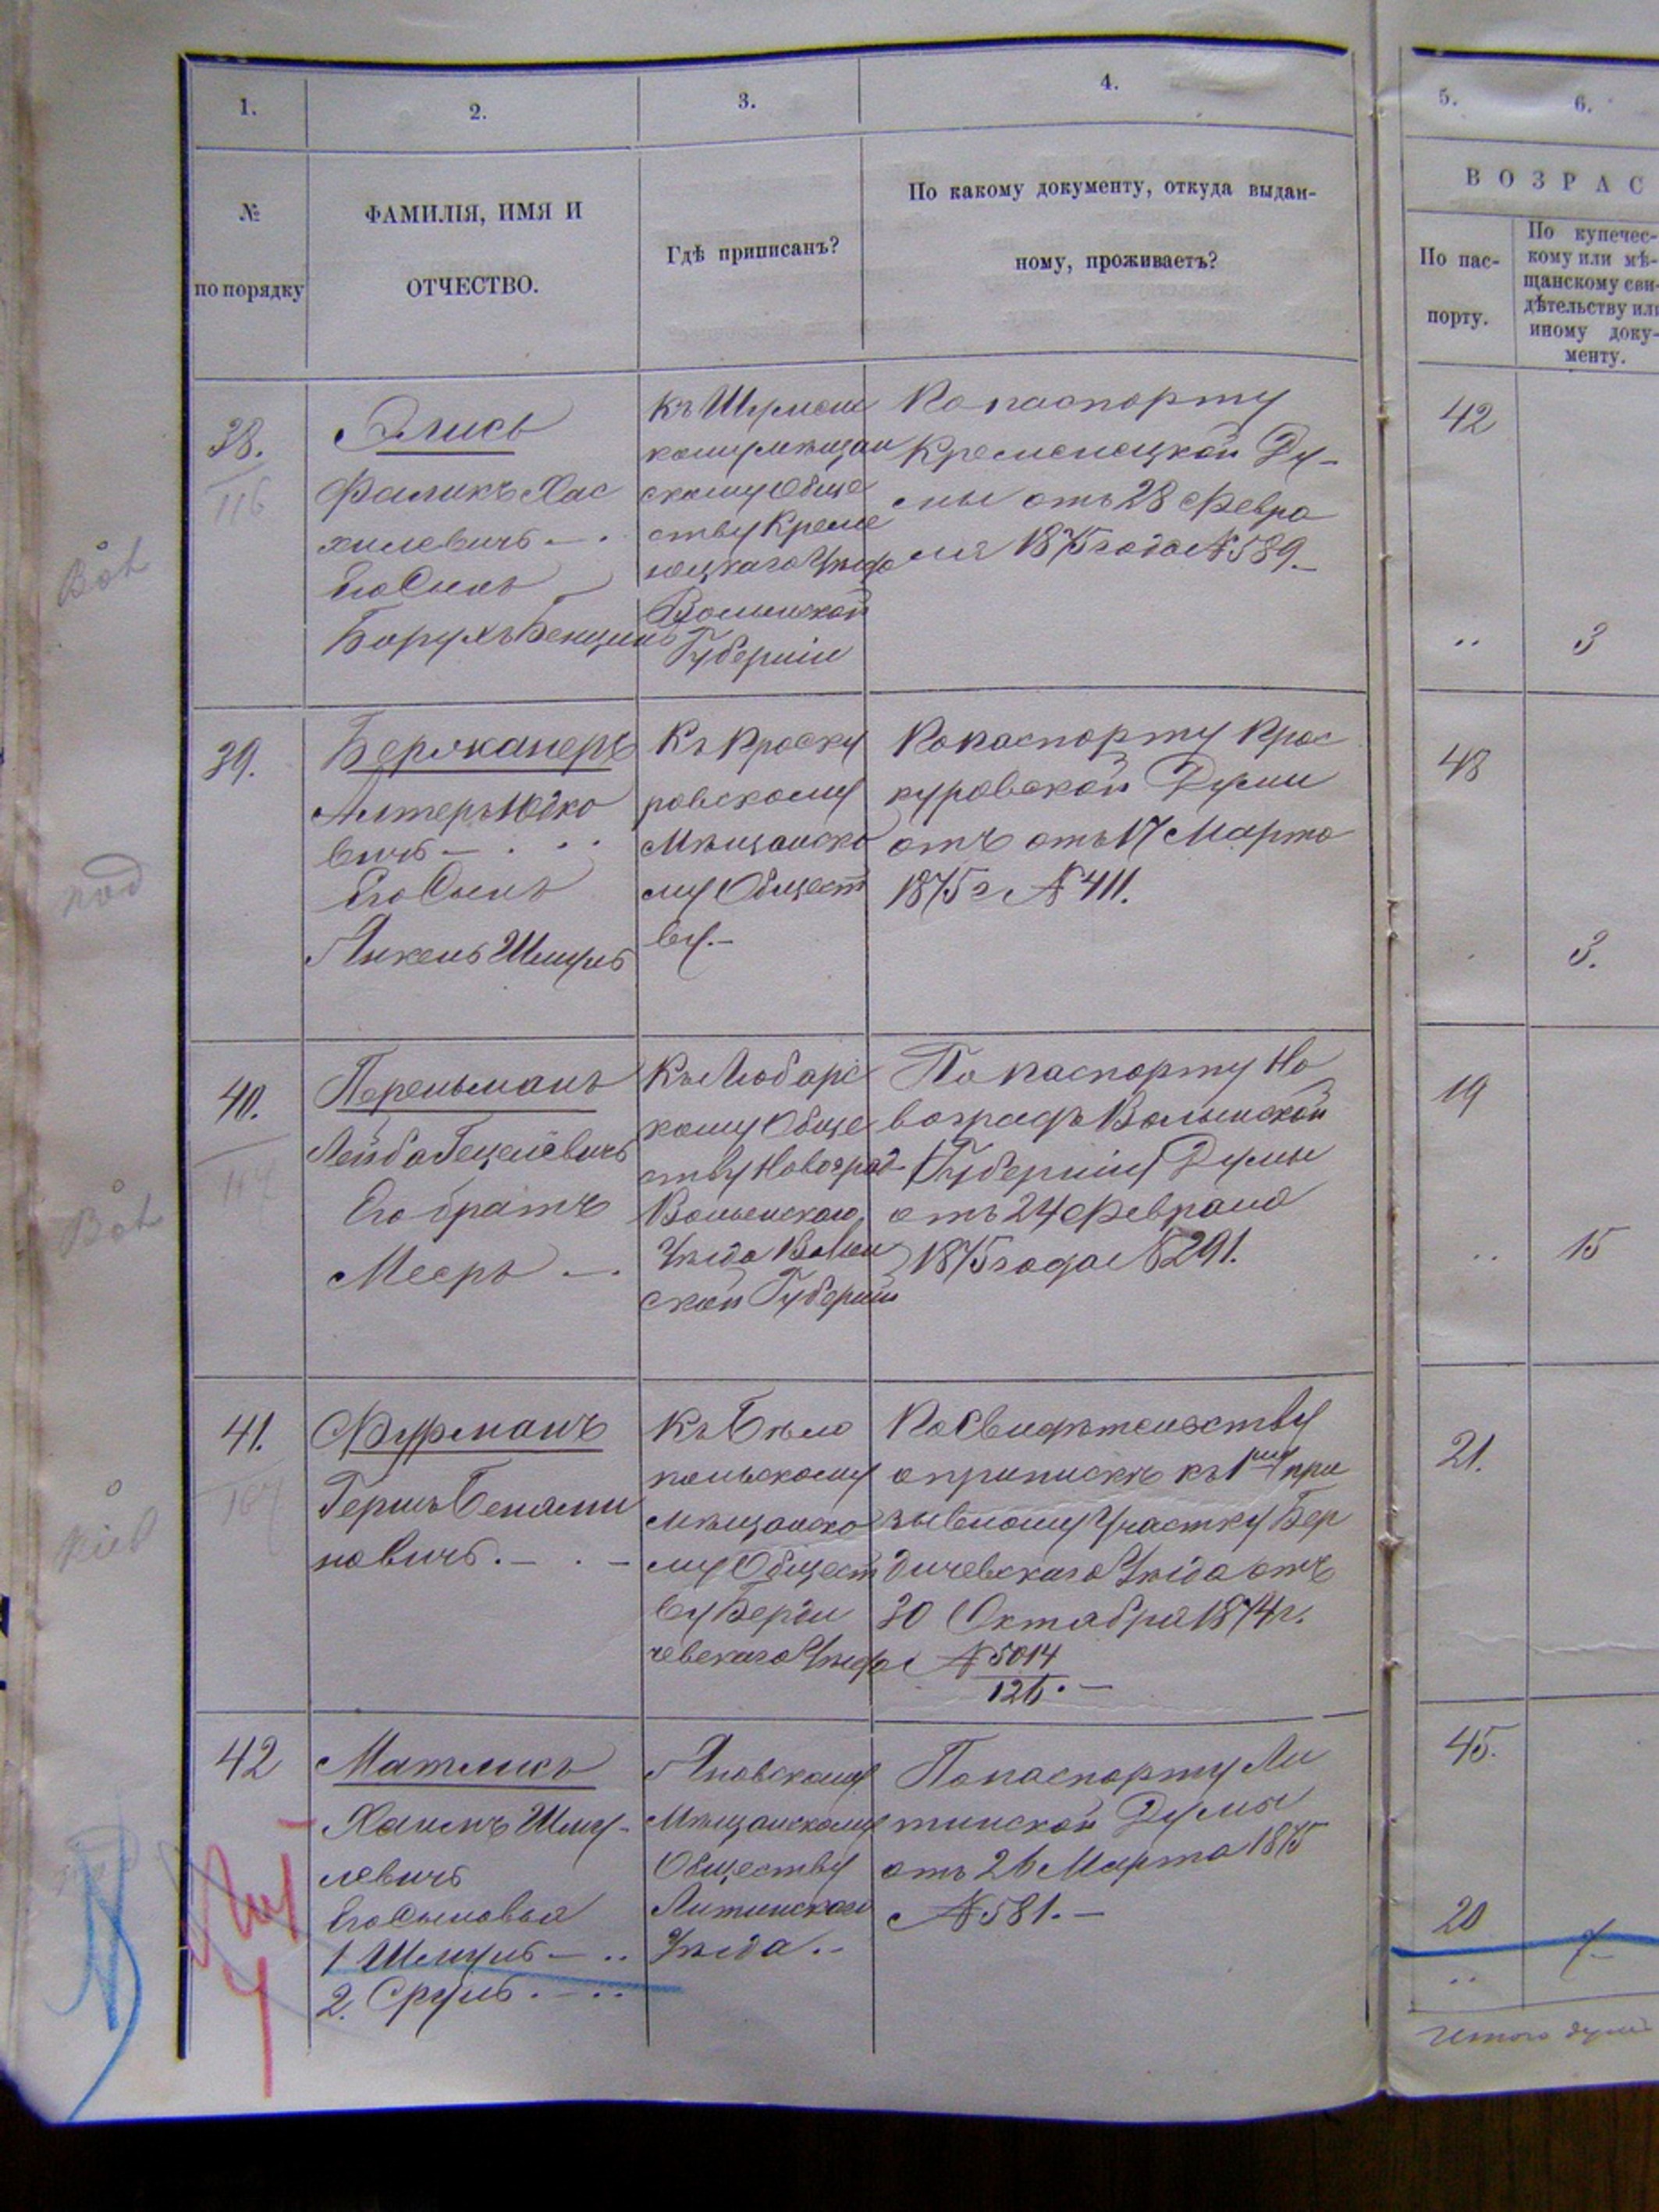 1.
2.
3.
4.
5.
6.
№
по порядку
ФАМИЛІЯ, ИМЯ И
ОТЧЕСТВО.
Гдѣ приписанъ?
По какому документу, откуда выдан-
ному, проживаетъ?
ВОЗРАС
По пас-
порту.
По купечес-
кому или мѣ-
щанскому сви-
дѣтельству или
иному доку-
менту.
38.
116
Элисъ
Фаликъ Хас
хилевичъ —.
Его Сынъ
Борухъ Бенціонъ
Къ Шумско
кому мѣщан
скому Обще
ству Креме
нецкаго Уѣзда
Волынской
Губерніи
По паспорту
Кременецкой Ду-
мы отъ 28 Февра
ля 1875 года № 589.—
42
3
39.
Алтеръ Юдко
вичъ — . . .
Его Сынъ
Янкель Шмуль
Къ Проску
ровскому
Мѣщанско
му Общест
ву.—
По паспорту Прос
куровской Думи
отъ отъ 17 Марта
1875 г № 411.
48
3.
40.
Перельманъ
Лейба Гецелевичъ
Его братъ
Мееръ —.
Къ Любарс
кому Обще
ству Новоград
Волынскаго
Уѣзда Волын
ской Губерніи
По паспорту Но
воградъ Волынской
Губерніи Думы
отъ 24 Февраля
1875 года № 291.
19
15
41.
107
Фурманъ
Гершъ Беньями
новичъ.— . —
Къ Бѣло
польскому
мѣщанско
му Общест
ву Берди
чевскаго Уѣзда
По Свидѣтельству
о припискѣ къ 1му при
зывному Участку Бер
дичевскаго Уѣзда отъ
30 Октября 1874 г.
№ 5014
126.—
21.
42
Матликъ
Хаимъ Шму-
левичъ
Его Сыновья
1 Шмуль — ..
2. Сруль . — ..
Яновскому
Мѣщанскому
Обществу
Литинскаго
Уѣзда.—
По паспорту Ли
тинской Думы
отъ 26 Марта 1875
№ 581.—
45.
20
7—
Итого душъ